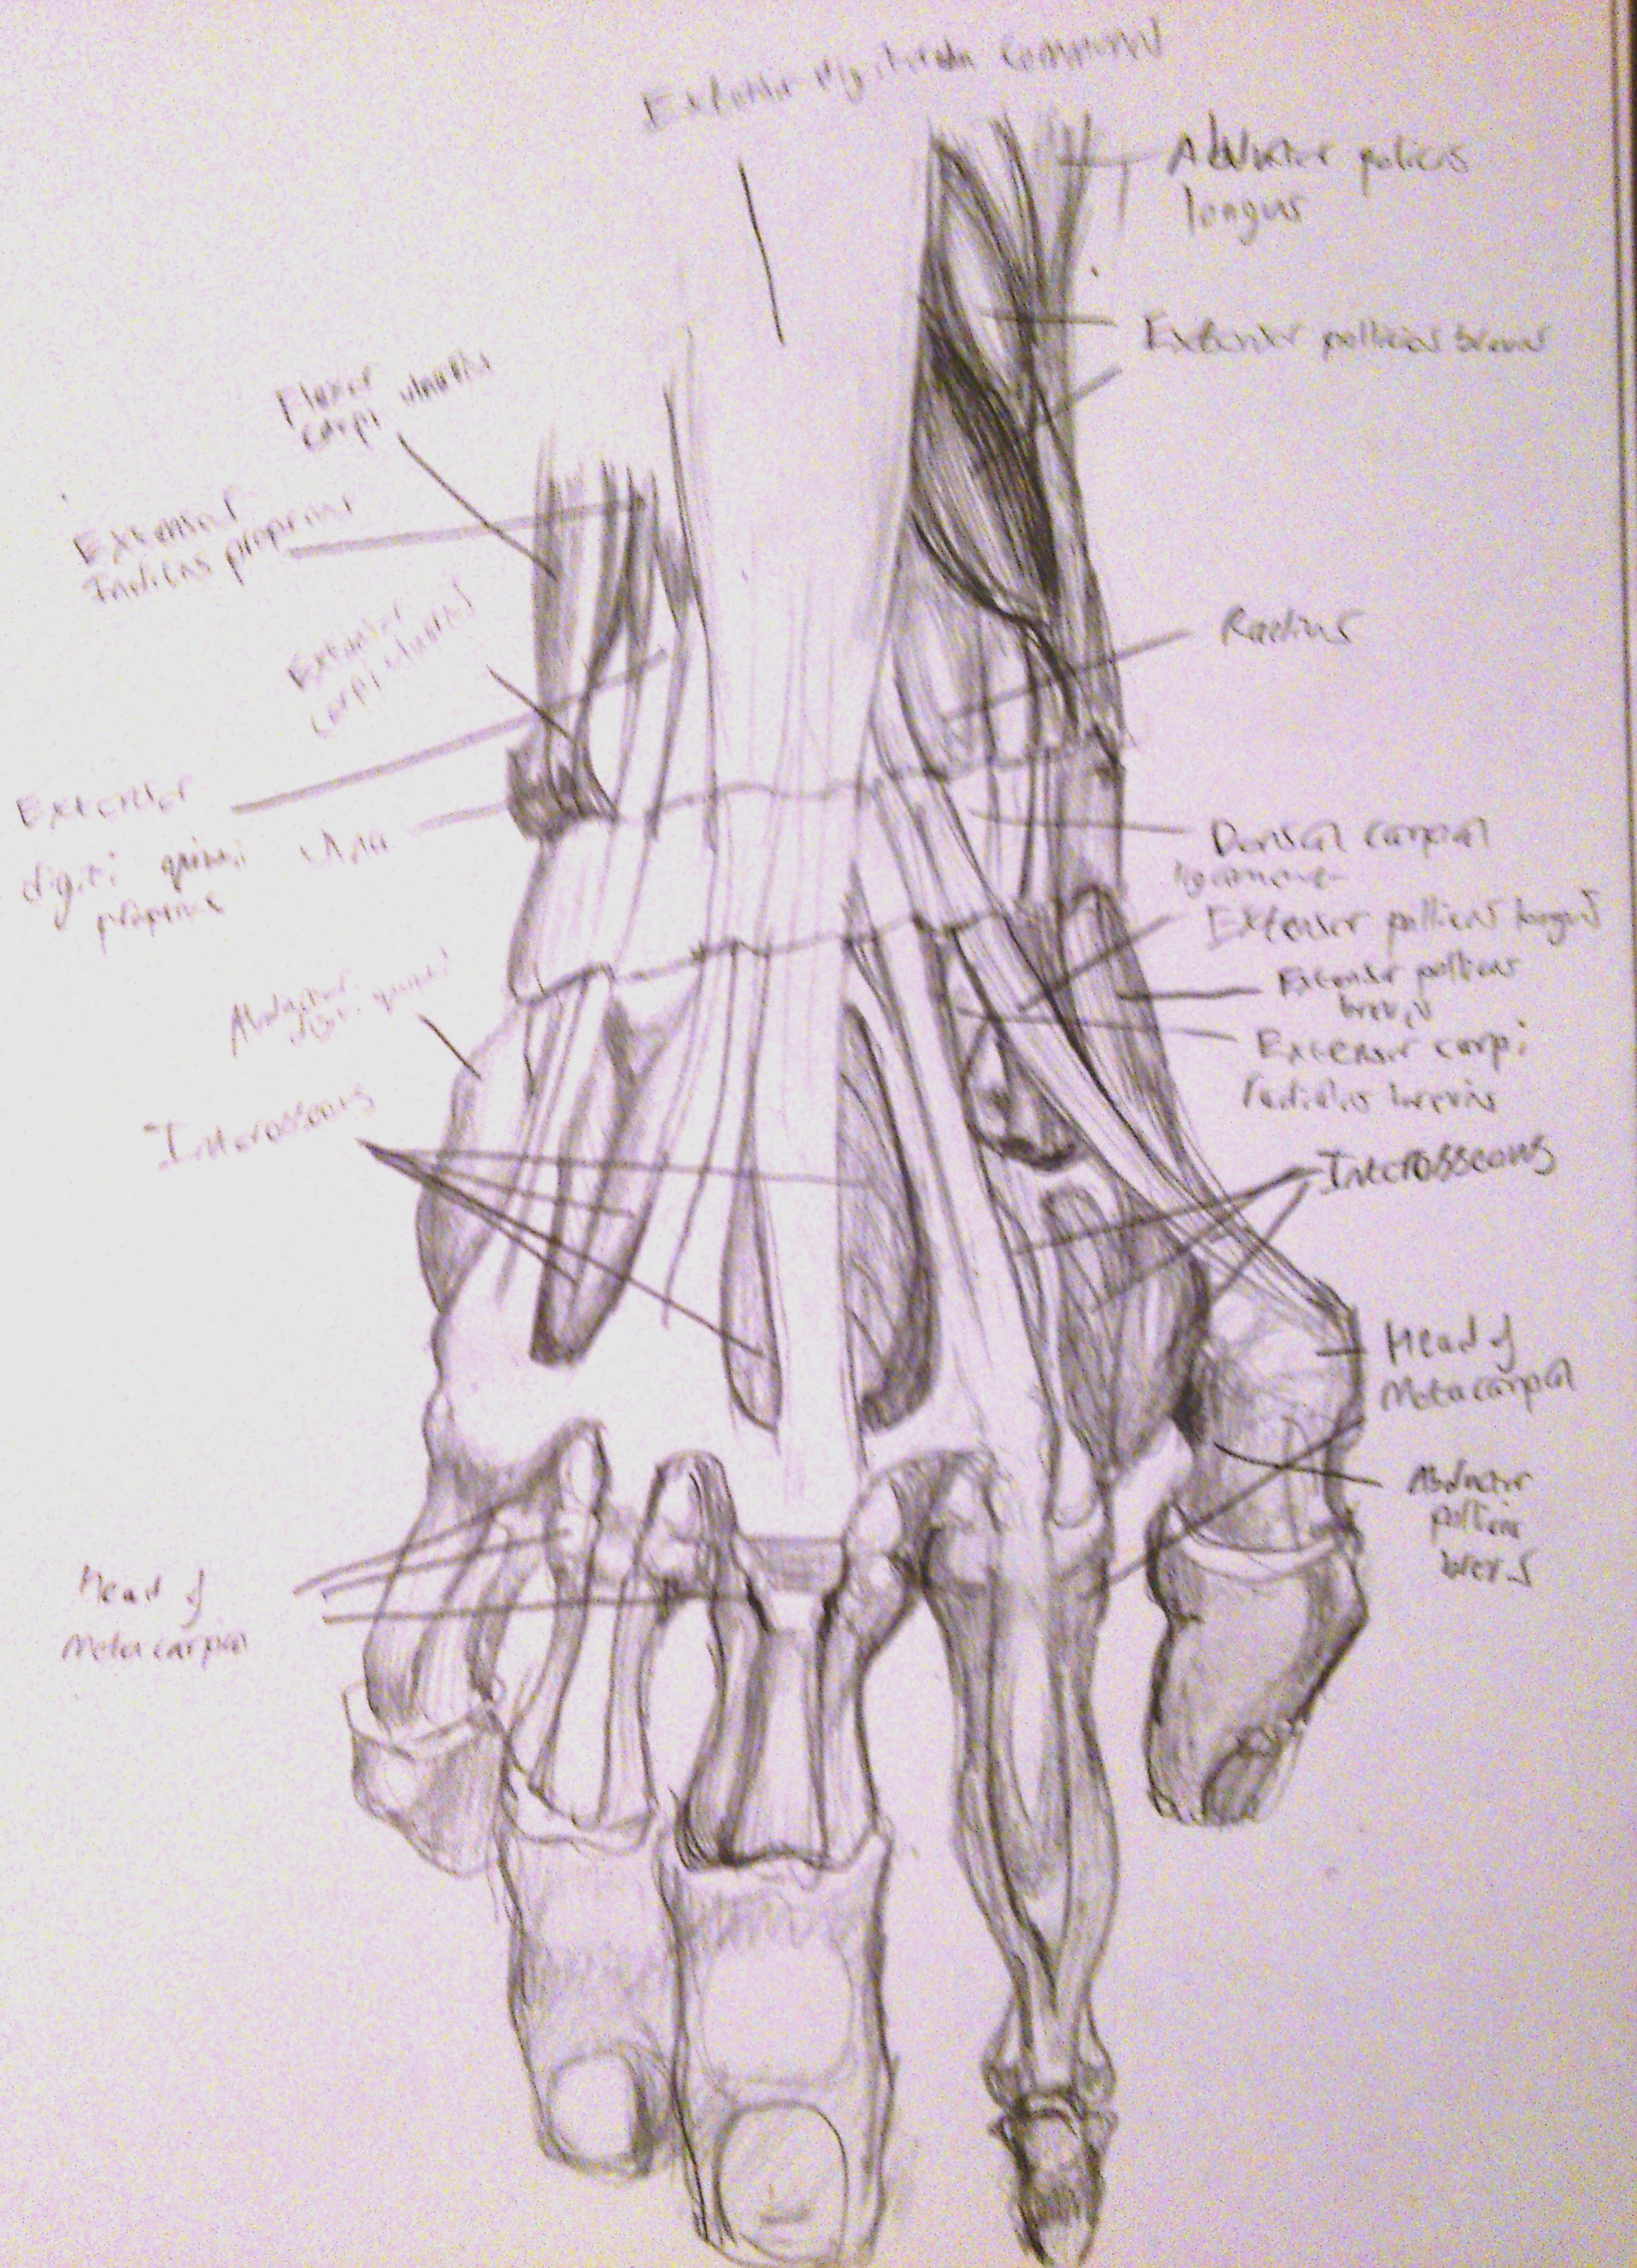 Extensor digitorum communis
Abductor policis
longus
Extensor pollicis brevis
Flexor
carpi ulnaris
Extensor
Indicis proprius
Extensor
carpi ulnaris
Radius
Extensor
digiti quinti
proprius
ulna
Dorsal carpal
ligament
Extensor pollicis longus
Extensor pollicis
brevis
Extensor carpi
radialis brevis
Abductor
digi. quinti
Interosseous
Interosseous
Head of
Metacarpal
Abductor
pollicis
brevis
Head of
Metacarpal